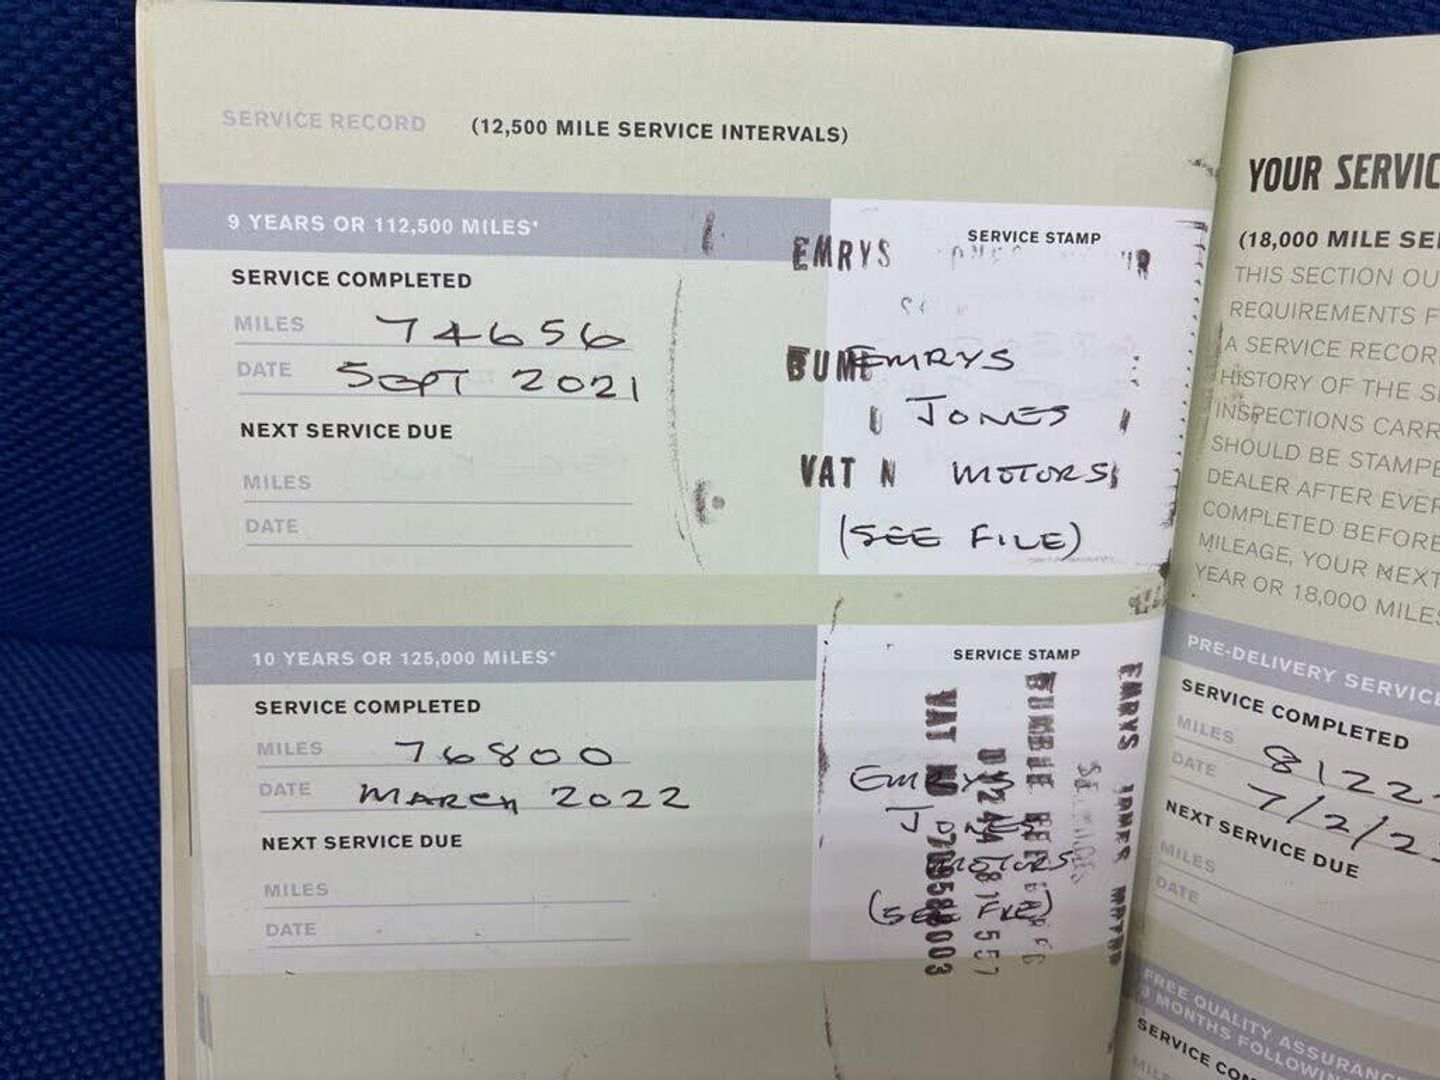 SERVICE RECORD (12,500 MILE SERVICE INTERVALS)
9 YEARS OR 112,500 MILES*
SERVICE COMPLETED
MILES 74656
DATE SEPT 2021
NEXT SERVICE DUE
MILES
DATE
SERVICE STAMP
EMRYS
EMRYS
JONES
VAT N MOTORS
(SEE FILE)
10 YEARS OR 125,000 MILES*
SERVICE COMPLETED
MILES 76800
DATE MARCH 2022
NEXT SERVICE DUE
MILES
DATE
SERVICE STAMP
EMRYS
JONES
MOTORS
(SEE FILE)
EMRYS
BUMBLE
VAT
YOUR SERVIC
(18,000 MILE SE
THIS SECTION OU
REQUIREMENTS F
A SERVICE RECOR
HISTORY OF THE S
INSPECTIONS CARR
SHOULD BE STAMPE
DEALER AFTER EVER
COMPLETED BEFORE
MILEAGE, YOUR NEXT
YEAR OR 18,000 MILES
PRE-DELIVERY SERVICE
SERVICE COMPLETED
MILES 8122
DATE 7/2/2
NEXT SERVICE DUE
MILES
DATE
FREE QUALITY ASSURANC
3 MONTHS FOLLOWIN
SERVICE COM